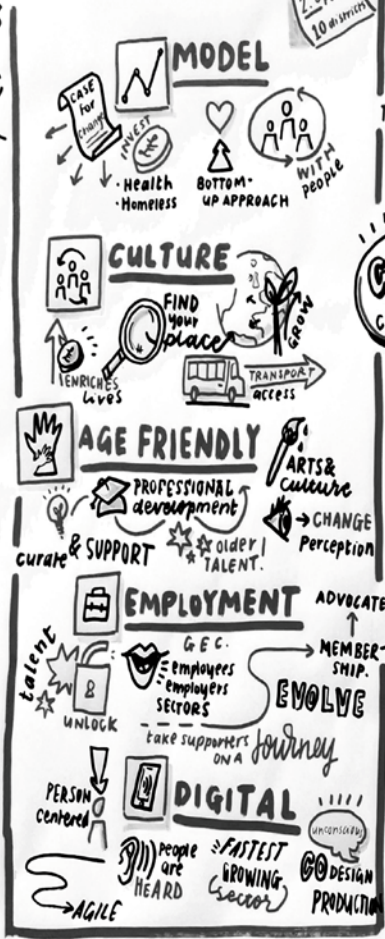 10 districts
MODEL
CASE
for
change
INVEST
• Health
• Homeless
BOTTOM-
UP APPROACH
WITH
people
CULTURE
FIND
your
place
GROW
ENRICHES
lives
TRANSPORT
access
AGE FRIENDLY
ARTS &
culture
PROFESSIONAL
development
→ CHANGE
Perception
curate & SUPPORT
older/
TALENT.
EMPLOYMENT
ADVOCATE
MEMBER-
SHIP.
talent
UNLOCK
G.E.C.
employees
employers
SECTORS
EVOLVE
take supporters
ON A Journey
PERSON
centered
DIGITAL
unconscious
People
are
HEARD
FASTEST
GROWING
sector
CO DESIGN
PRODUCTION
AGILE